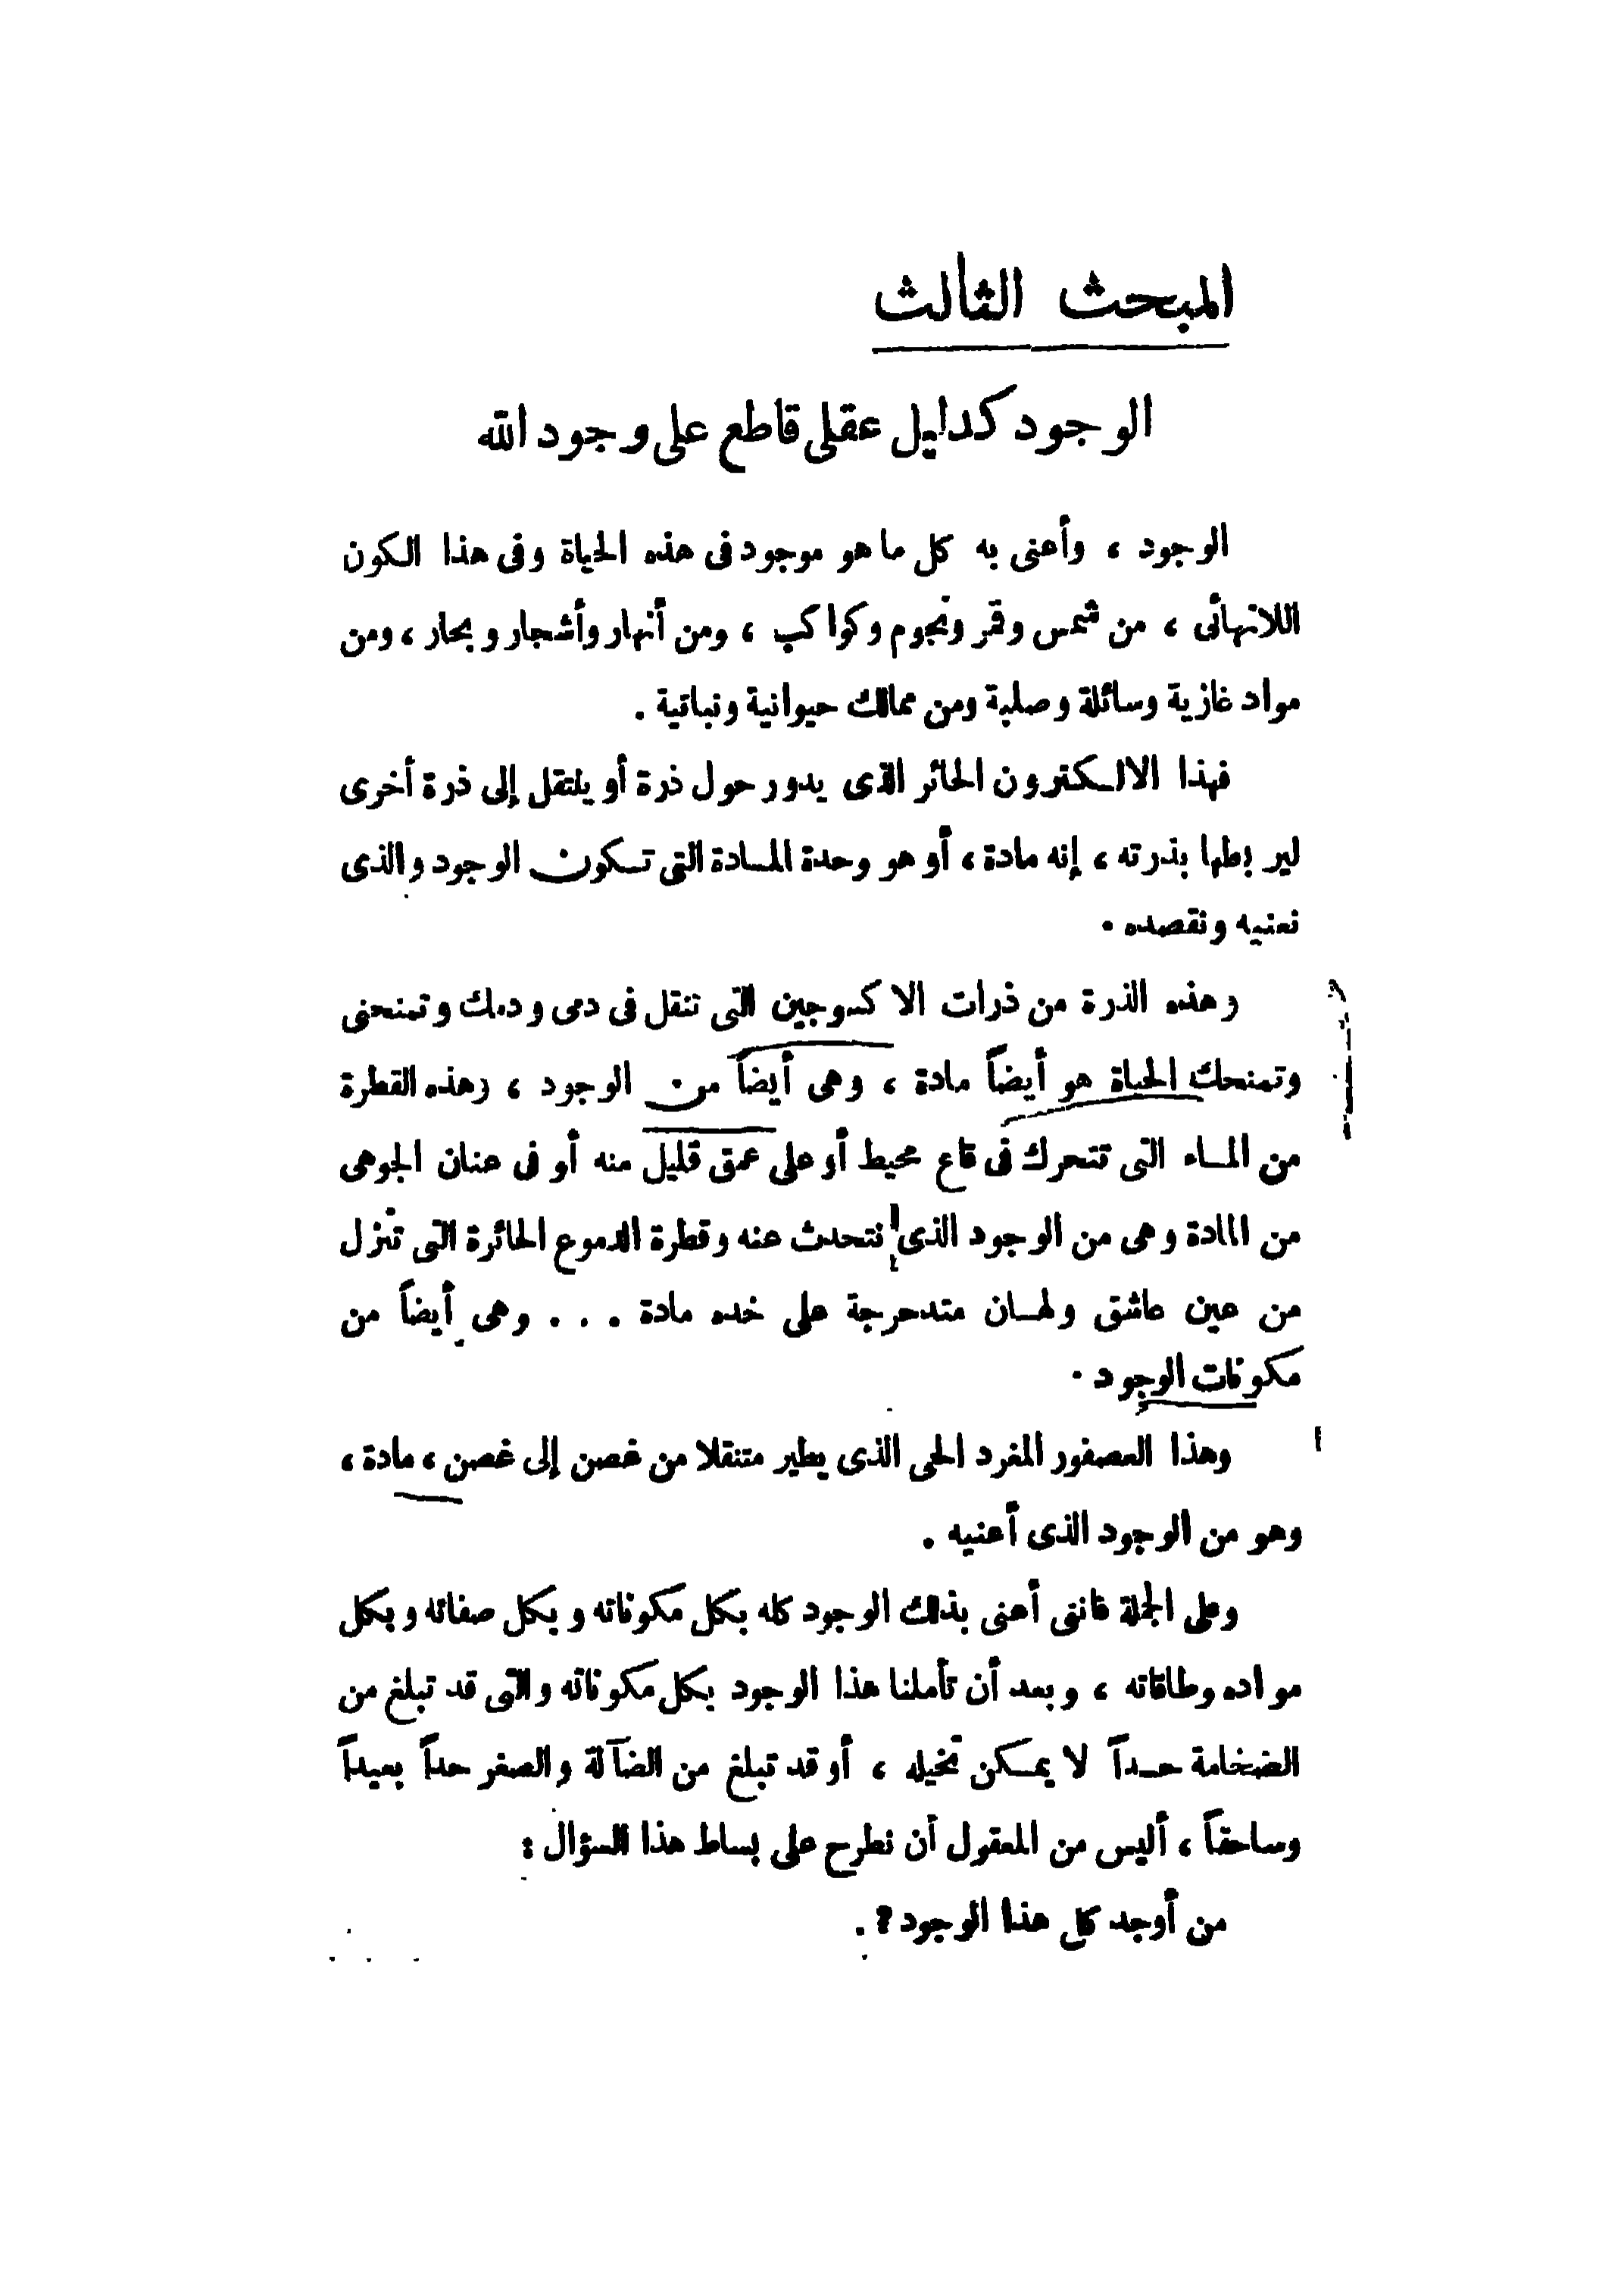 المبحث الثالث
الوجود كدليل عقلى قاطع على وجود الله
الوجود ، وأعنى به كل ما هو موجود فى هذه الحياة وفى هذا الكون
اللانهائى ، من شمس وقمر ونجوم وكواكب ، ومن أنهار وأشجار وبحار ، ومن
مواد غازية وسائلة وصلبة ومن ممالك حيوانية ونباتية .
فهذا الالكترون الحائر الذى يدور حول ذرة أو ينتقل إلى ذرة أخرى
ليربطها بذرته ، إنه مادة ، أو هو وحدة المادة التى تكون الوجود والذى
نعنيه ونقصده .
وهذه الذرة من ذرات الاكسوجين التى تنقل فى دمى ودمك وتمنحنى
وتمنحك الحياة هو أيضاً مادة ، وهى أيضاً من الوجود ، وهذه القطرة
من الماء التى تتحرك فى قاع محيط أو على عمق قليل منه أو فى عنان الجو هى
من المادة وهى من الوجود الذى نتحدث عنه وقطرة الدموع الحائرة التى تنزل
من عين عاشق ولهان متدحرجة على خده مادة . . . وهى أيضاً من
مكونات الوجود .
وهذا العصفور المغرد الحى الذى يطير متنقلا من غصن إلى غصن ، مادة ،
وهو من الوجود الذى أعنيه .
وعلى الجملة فانى أعنى بذلك الوجود كله بكل مكوناته وبكل صفاته وبكل
مواده وطاقاته ، وبعد أن تأملنا هذا الوجود بكل مكوناته والتى قد تبلغ من
الضخامة حداً لا يمكن تخيله ، أو قد تبلغ من الضآلة والصغر حداً بعيداً
وساحقاً ، أليس من المعقول أن نطرح على بساط هذا السؤال :
من أوجد كل هذا الوجود ؟ .